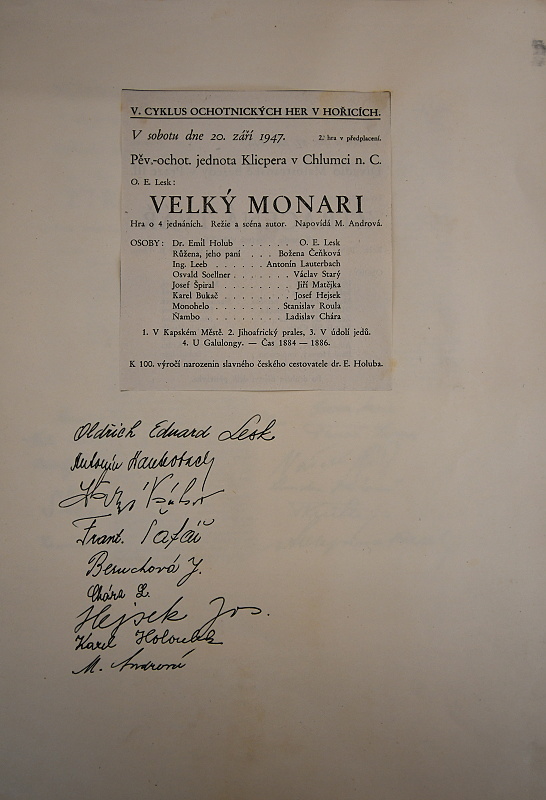 V. CYKLUS OCHOTNICKÝCH HER V HOŘICÍCH.
V sobotu dne 20. září 1947. 2. hra v předplacení.
Pěv.-ochot. jednota Klicpera v Chlumci n. C.
O. E. Lesk:
VELKÝ MONARI
Hra o 4 jednáních. Režie a scéna autor. Napovídá M. Andrová.
OSOBY: Dr. Emil Holub . . . . . . O. E. Lesk
Růžena, jeho paní . . . Božena Čeňková
Ing. Leeb . . . . . . Antonín Lauterbach
Osvald Soellner . . . . . . . Václav Starý
Josef Špiral . . . . . . . . . Jiří Matějka
Karel Bukač . . . . . . . . . Josef Hejsek
Monohelo . . . . . . . . Stanislav Roula
Ňambo . . . . . . . . . Ladislav Chára
1. V Kapském Městě. 2. Jihoafrický prales, 3. V údolí jedů.
4. U Galulongy. — Čas 1884 — 1886.
K 100. výročí narozenin slavného českého cestovatele dr. E. Holuba.
Oldřich Eduard Lesk
Antonín
Frant.
Beruchová J.
Chára L.
Hejsek Jos.
Karel Holoubek
M. Andrová